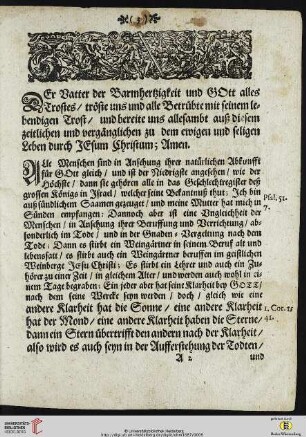 ( 3 )
DEr Vatter der Barmhertzigkeit und GOtt alles
Trostes / tröste uns und alle Betrübte mit seinem le-
bendigen Trost / und bereite uns allesambt auß diesem
zeitlichen und vergänglichen zu dem ewigen und seligen
Leben durch JEsum Christum; Amen.
Alle Menschen sind in Ansehung ihrer natürlichen Abkunfft
für GOtt gleich / und ist der Niedrigste angesehen / wie der
Höchste / dann sie gehören alle in das Geschlechtregister deß
grossen Königs in Israel / welcher seine Bekantnuß thut: Ich bin
auß sündlichem Saamen gezeuget / und meine Mutter hat mich in
Psal. 51.
Sünden empfangen: Dannoch aber ist eine Ungleichheit der
7.
Menschen / in Ansehung ihrer Beruffung und Verrichtung / ab-
sonderlich im Tode / und in der Gnaden-Vergeltung nach dem
Tode: Dann es stirbt ein Weingärtner in seinem Beruf alt und
lebenssatt / es stirbt auch ein Weingärtner beruffen im geistlichen
Weinberge Jesu Christi; Es stirbt ein Lehrer und auch ein Zu-
hörer zu einer Zeit / in gleichem Alter / und werden auch wohl in einem
Tage begraben: Ein jeder aber hat seine Klarheit bey GOTT /
nach dem seine Wercke seyn werden / doch / gleich wie eine
andere Klarheit hat die Sonne / eine andere Klarheit
1. Cor. 15
hat der Mond / eine andere Klarheit haben die Sterne /
41.
dann ein Stern übertrifft den andern nach der Klarheit /
also wird es auch seyn in der Aufferstehung der Todten /
A 2 und
UNIVERSITÄTS-
BIBLIOTHEK
HEIDELBERG
© Universitätsbibliothek Heidelberg